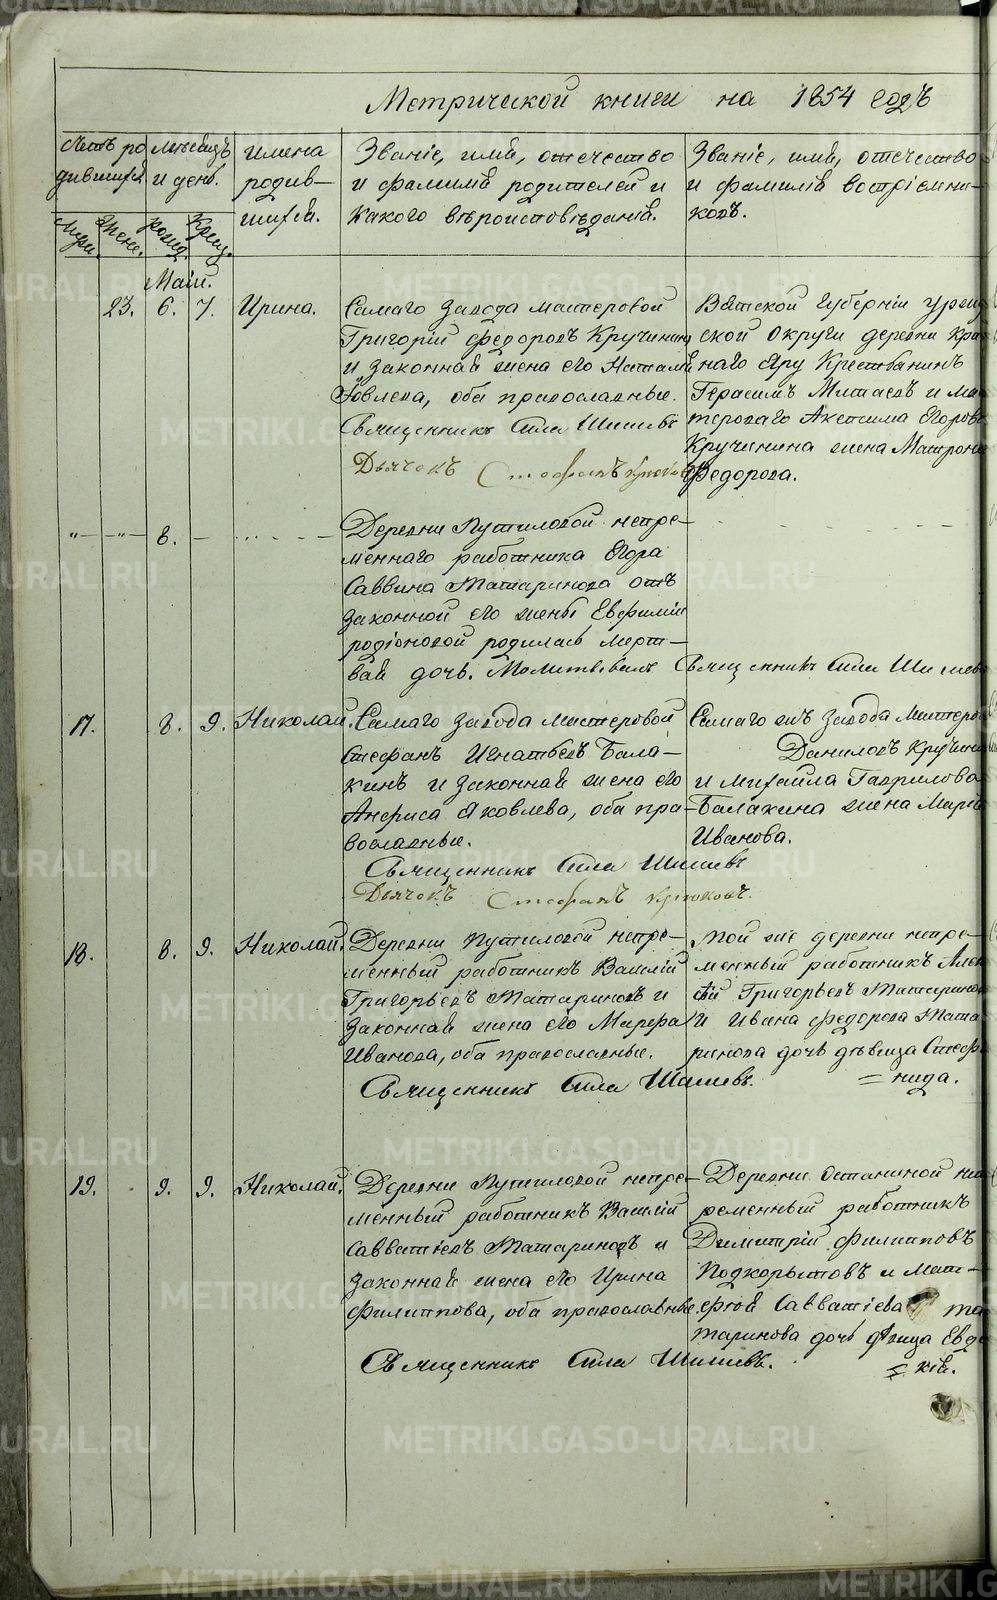 Метрической книги на 1854 годъ
Счетъ ро
дившихся
Мѣсяцъ
и день.
имена
родив-
шихся.
Званіе, имя, отечество
и фамилія родителей и
какого вѣроисповѣданія.
Званіе, имя, отечество
и фамилія воспріемни-
ковъ.
Муж.
Жене.
рожд.
Крещ.
Маій.
23. 6. 7. Ирина.
Самаго завода мастеровой
Григорій Федоровъ Кручининъ
и законная жена его Наталія
Яковлева, оба православные.
Священникъ Сила Шишевъ
Дьячекъ Стефанъ Крюковъ
Вятской Губерніи
ской округи деревни
наго Яру Крестьянинъ
Герасимъ и
тероваго Аксенма Егорова
Кручинина жена Матрона
Федорова.
8.
Деревни Путиловой непре-
меннаго работника Егора
Саввина Татаринова отъ
законной его жены Евфиміи
родіоновой родилась мерт-
вая дочь. Молитвовалъ Священникъ Сила Шишевъ
17. 8. 9. Николай.
Самаго завода мастеровой
Стефанъ Игнатьевъ Бала-
кинъ и законная жена его
Анфиса Яковлева, оба пра-
вославные.
Священникъ Сила Шишевъ
Дьячекъ Стефанъ Крюковъ.
Самаго жъ завода
Даниловъ
и михаила Гаврилова
Балакина жена Марія
Иванова.
18. 8. 9. Николай.
Деревни Путиловой непре-
менный работникъ Василій
Григорьевъ Татариновъ и
законная жена его Марфа
Иванова, оба православные.
Священникъ Сила Шишевъ.
той же деревни непре-
менный работникъ Алек
сѣй Григорьевъ
и Ивана федорова Тата
ринова дочь дѣвица Стефа
= нида.
19. 9. 9. Николай.
Деревни Путиловой непре-
менный работникъ Василій
Савватіевъ Татариновъ и
законная жена его Ирина
Филиппова, оба православные.
Священникъ Сила Шишевъ.
Деревни Останиной неп
ременный работникъ
Димитрій Филипповъ
Подкорытовъ и Мат-
фея Савватіева та
таринова дочь двица Евдо
= кія.